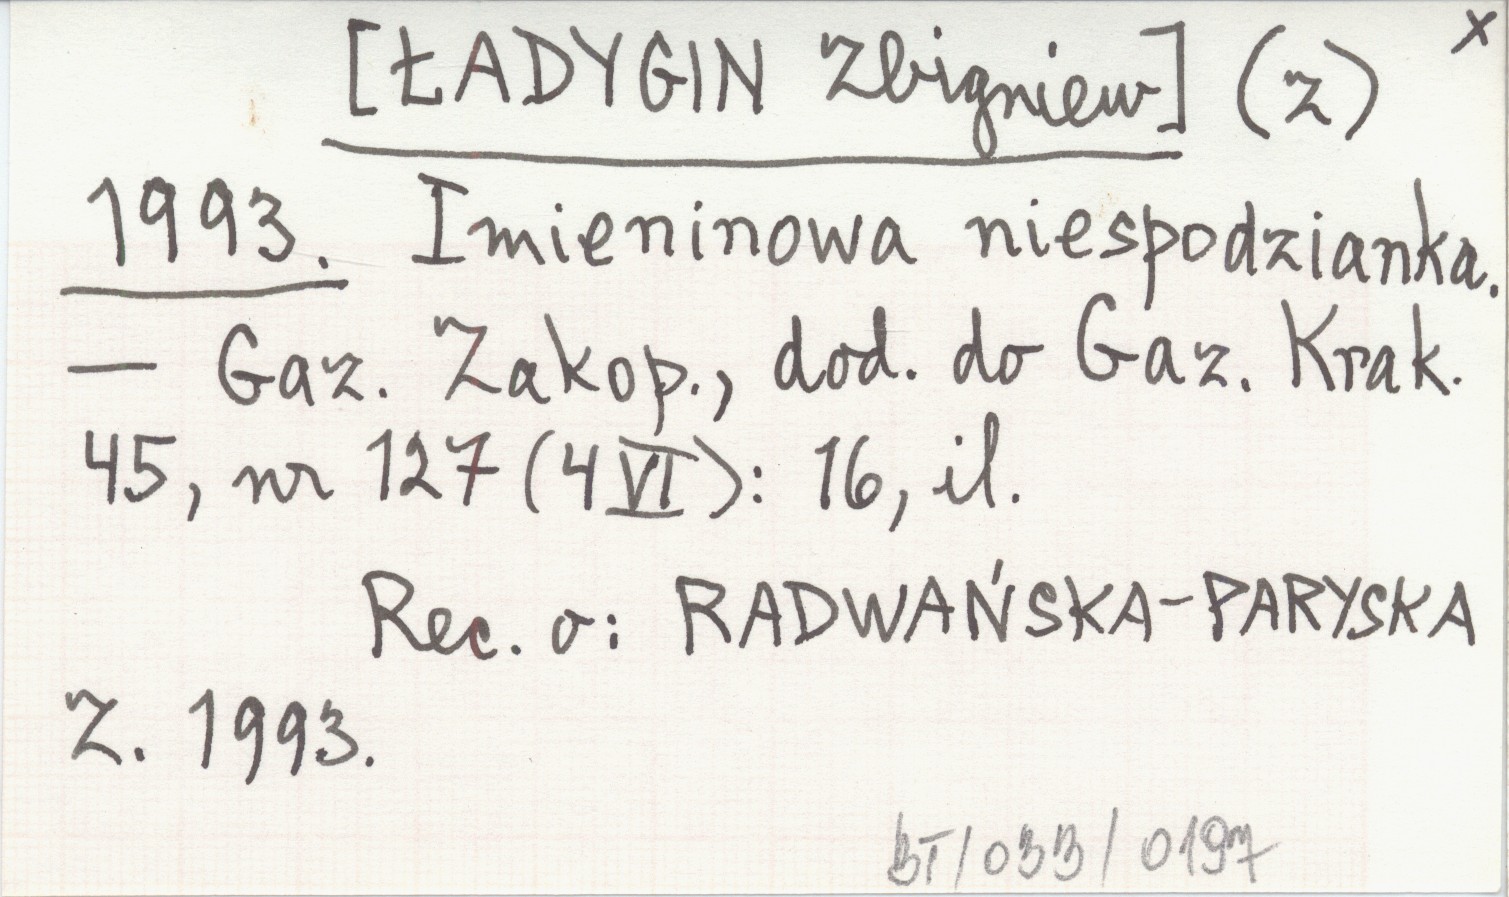 [ŁADYGIN Zbigniew] (z) x
1993. Imieninowa niespodzianka.
— Gaz. Zakop., dod. do Gaz. Krak.
45, nr 127 (4 VI): 16, il.
Rec. o: RADWAŃSKA-PARYSKA
Z. 1993.
BT/033/0197